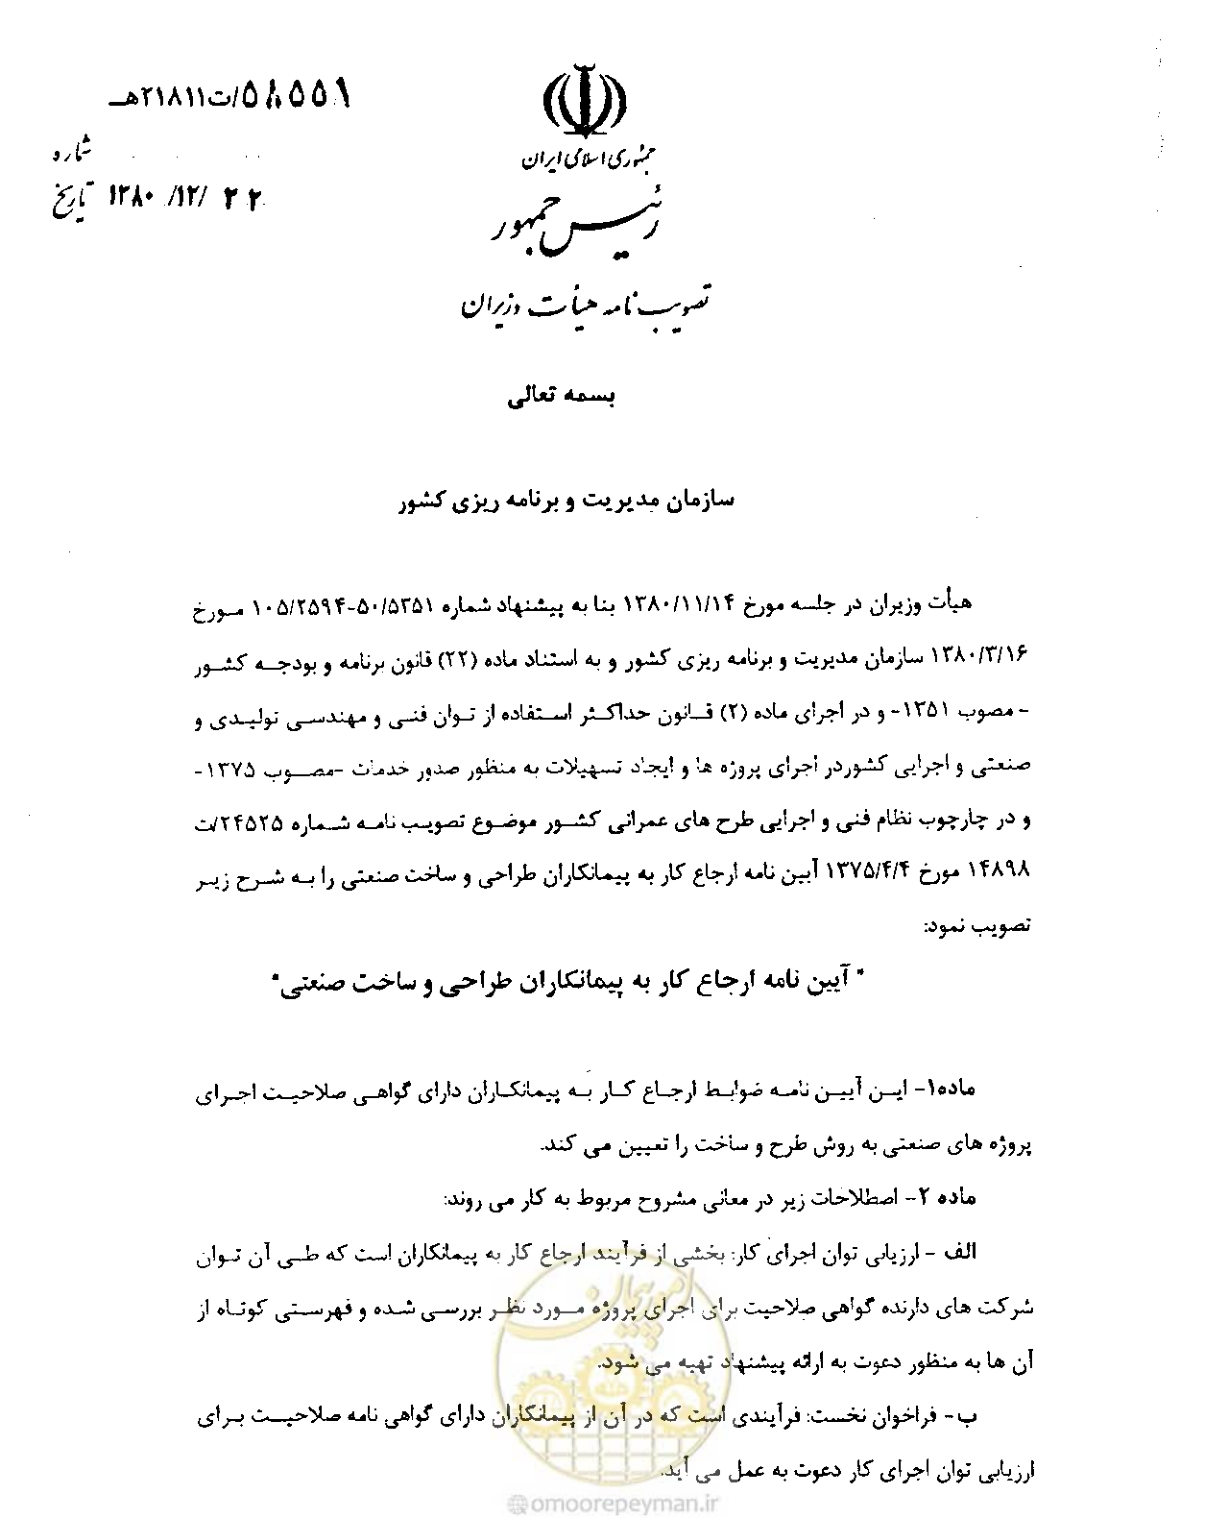 ۵۸۵۵۱/ت۲۱۸۱۱هـ
شماره
تاریخ ۱۳۸۰/۱۲/۲۲
جمهوری اسلامی ایران
رئیس جمهور
تصویب نامه هیأت وزیران
بسمه تعالی
سازمان مدیریت و برنامه ریزی کشور
هیأت وزیران در جلسه مورخ ۱۳۸۰/۱۱/۱۴ بنا به پیشنهاد شماره ۱۰۵/۲۵۹۴-۵۰/۵۳۵۱ مورخ
۱۳۸۰/۳/۱۶ سازمان مدیریت و برنامه ریزی کشور و به استناد ماده (۲۲) قانون برنامه و بودجه کشور
- مصوب ۱۳۵۱- و در اجرای ماده (۲) قانون حداکثر استفاده از توان فنی و مهندسی تولیدی و
صنعتی و اجرایی کشوردر اجرای پروژه ها و ایجاد تسهیلات به منظور صدور خدمات -مصوب ۱۳۷۵-
و در چارچوب نظام فنی و اجرایی طرح های عمرانی کشور موضوع تصویب نامه شماره ۲۴۵۲۵/ت
۱۴۸۹۸ مورخ ۱۳۷۵/۴/۴ آیین نامه ارجاع کار به پیمانکاران طراحی و ساخت صنعتی را به شرح زیر
تصویب نمود:
" آیین نامه ارجاع کار به پیمانکاران طراحی و ساخت صنعتی"
ماده۱- این آیین نامه ضوابط ارجاع کار به پیمانکاران دارای گواهی صلاحیت اجرای
پروژه های صنعتی به روش طرح و ساخت را تعیین می کند.
ماده ۲- اصطلاحات زیر در معانی مشروح مربوط به کار می روند:
الف - ارزیابی توان اجرای کار: بخشی از فرآیند ارجاع کار به پیمانکاران است که طی آن توان
شرکت های دارنده گواهی صلاحیت برای اجرای پروژه مورد نظر بررسی شده و فهرستی کوتاه از
آن ها به منظور دعوت به ارائه پیشنهاد تهیه می شود.
ب- فراخوان نخست: فرآیندی است که در آن از پیمانکاران دارای گواهی نامه صلاحیت برای
ارزیابی توان اجرای کار دعوت به عمل می آید.
امور پیمان
@omoorepeyman.ir